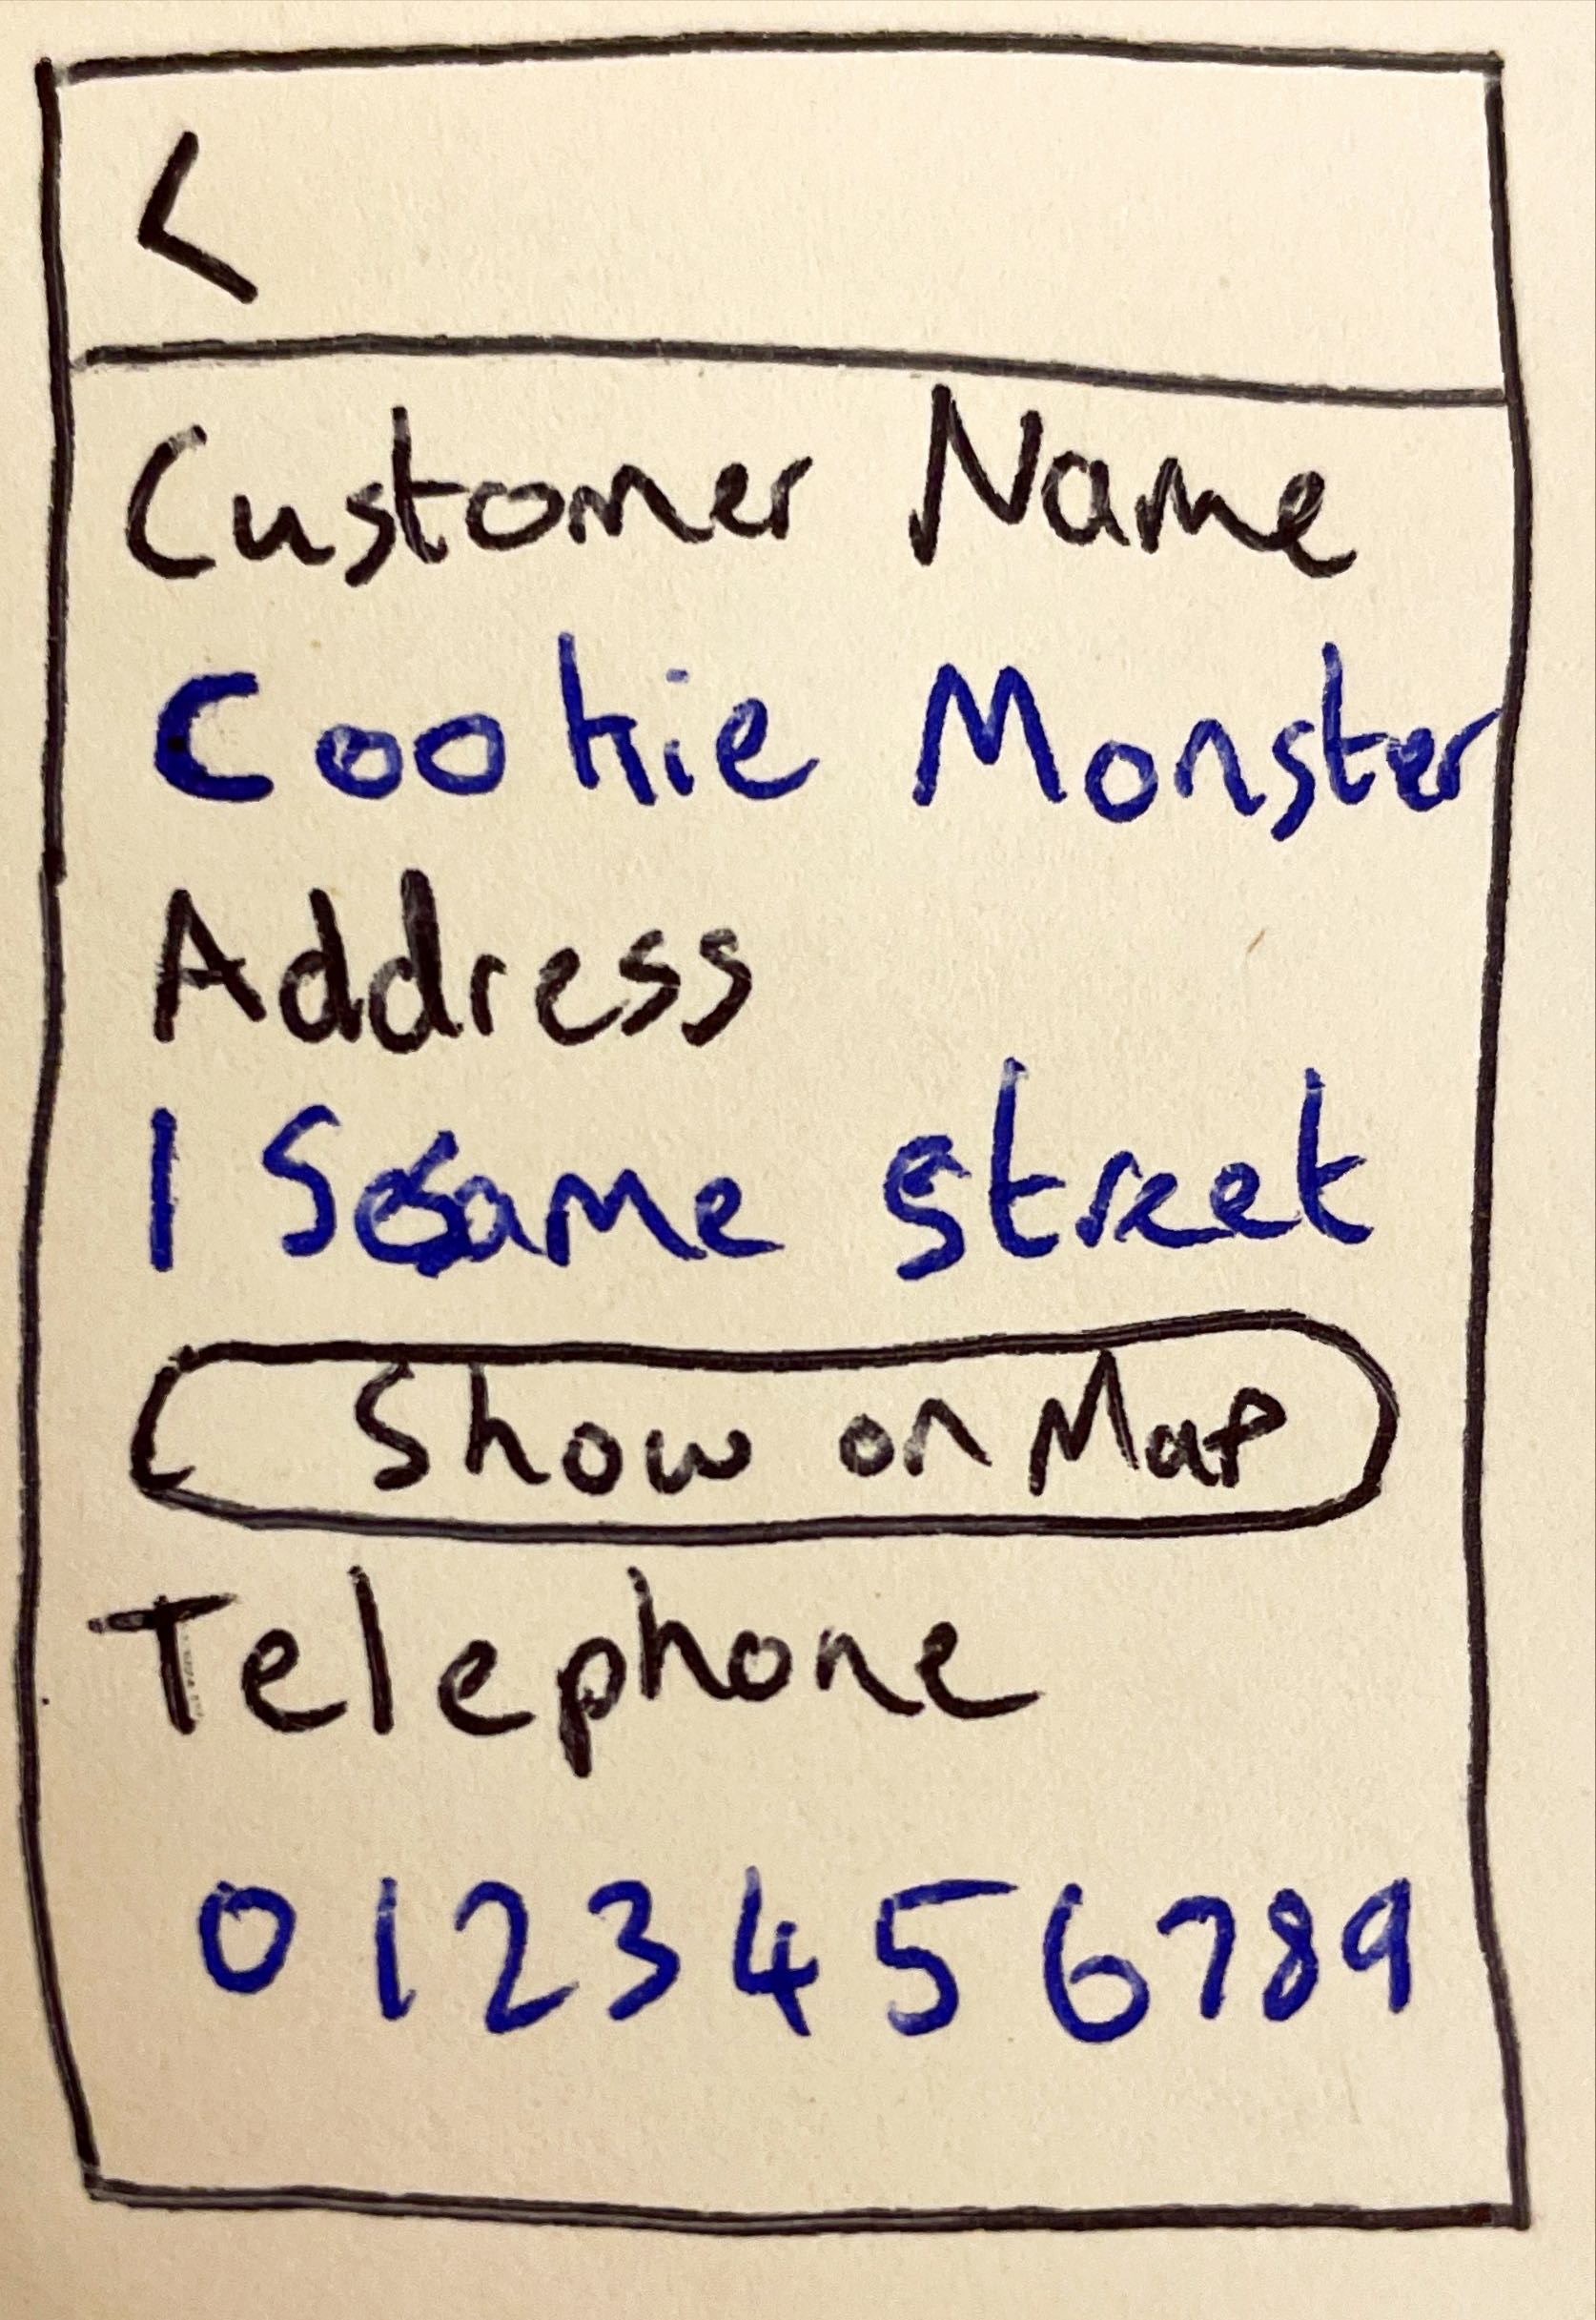 <
Customer Name
Cookie Monster
Address
1 Sesame Street
Show on Map
Telephone
0123456789